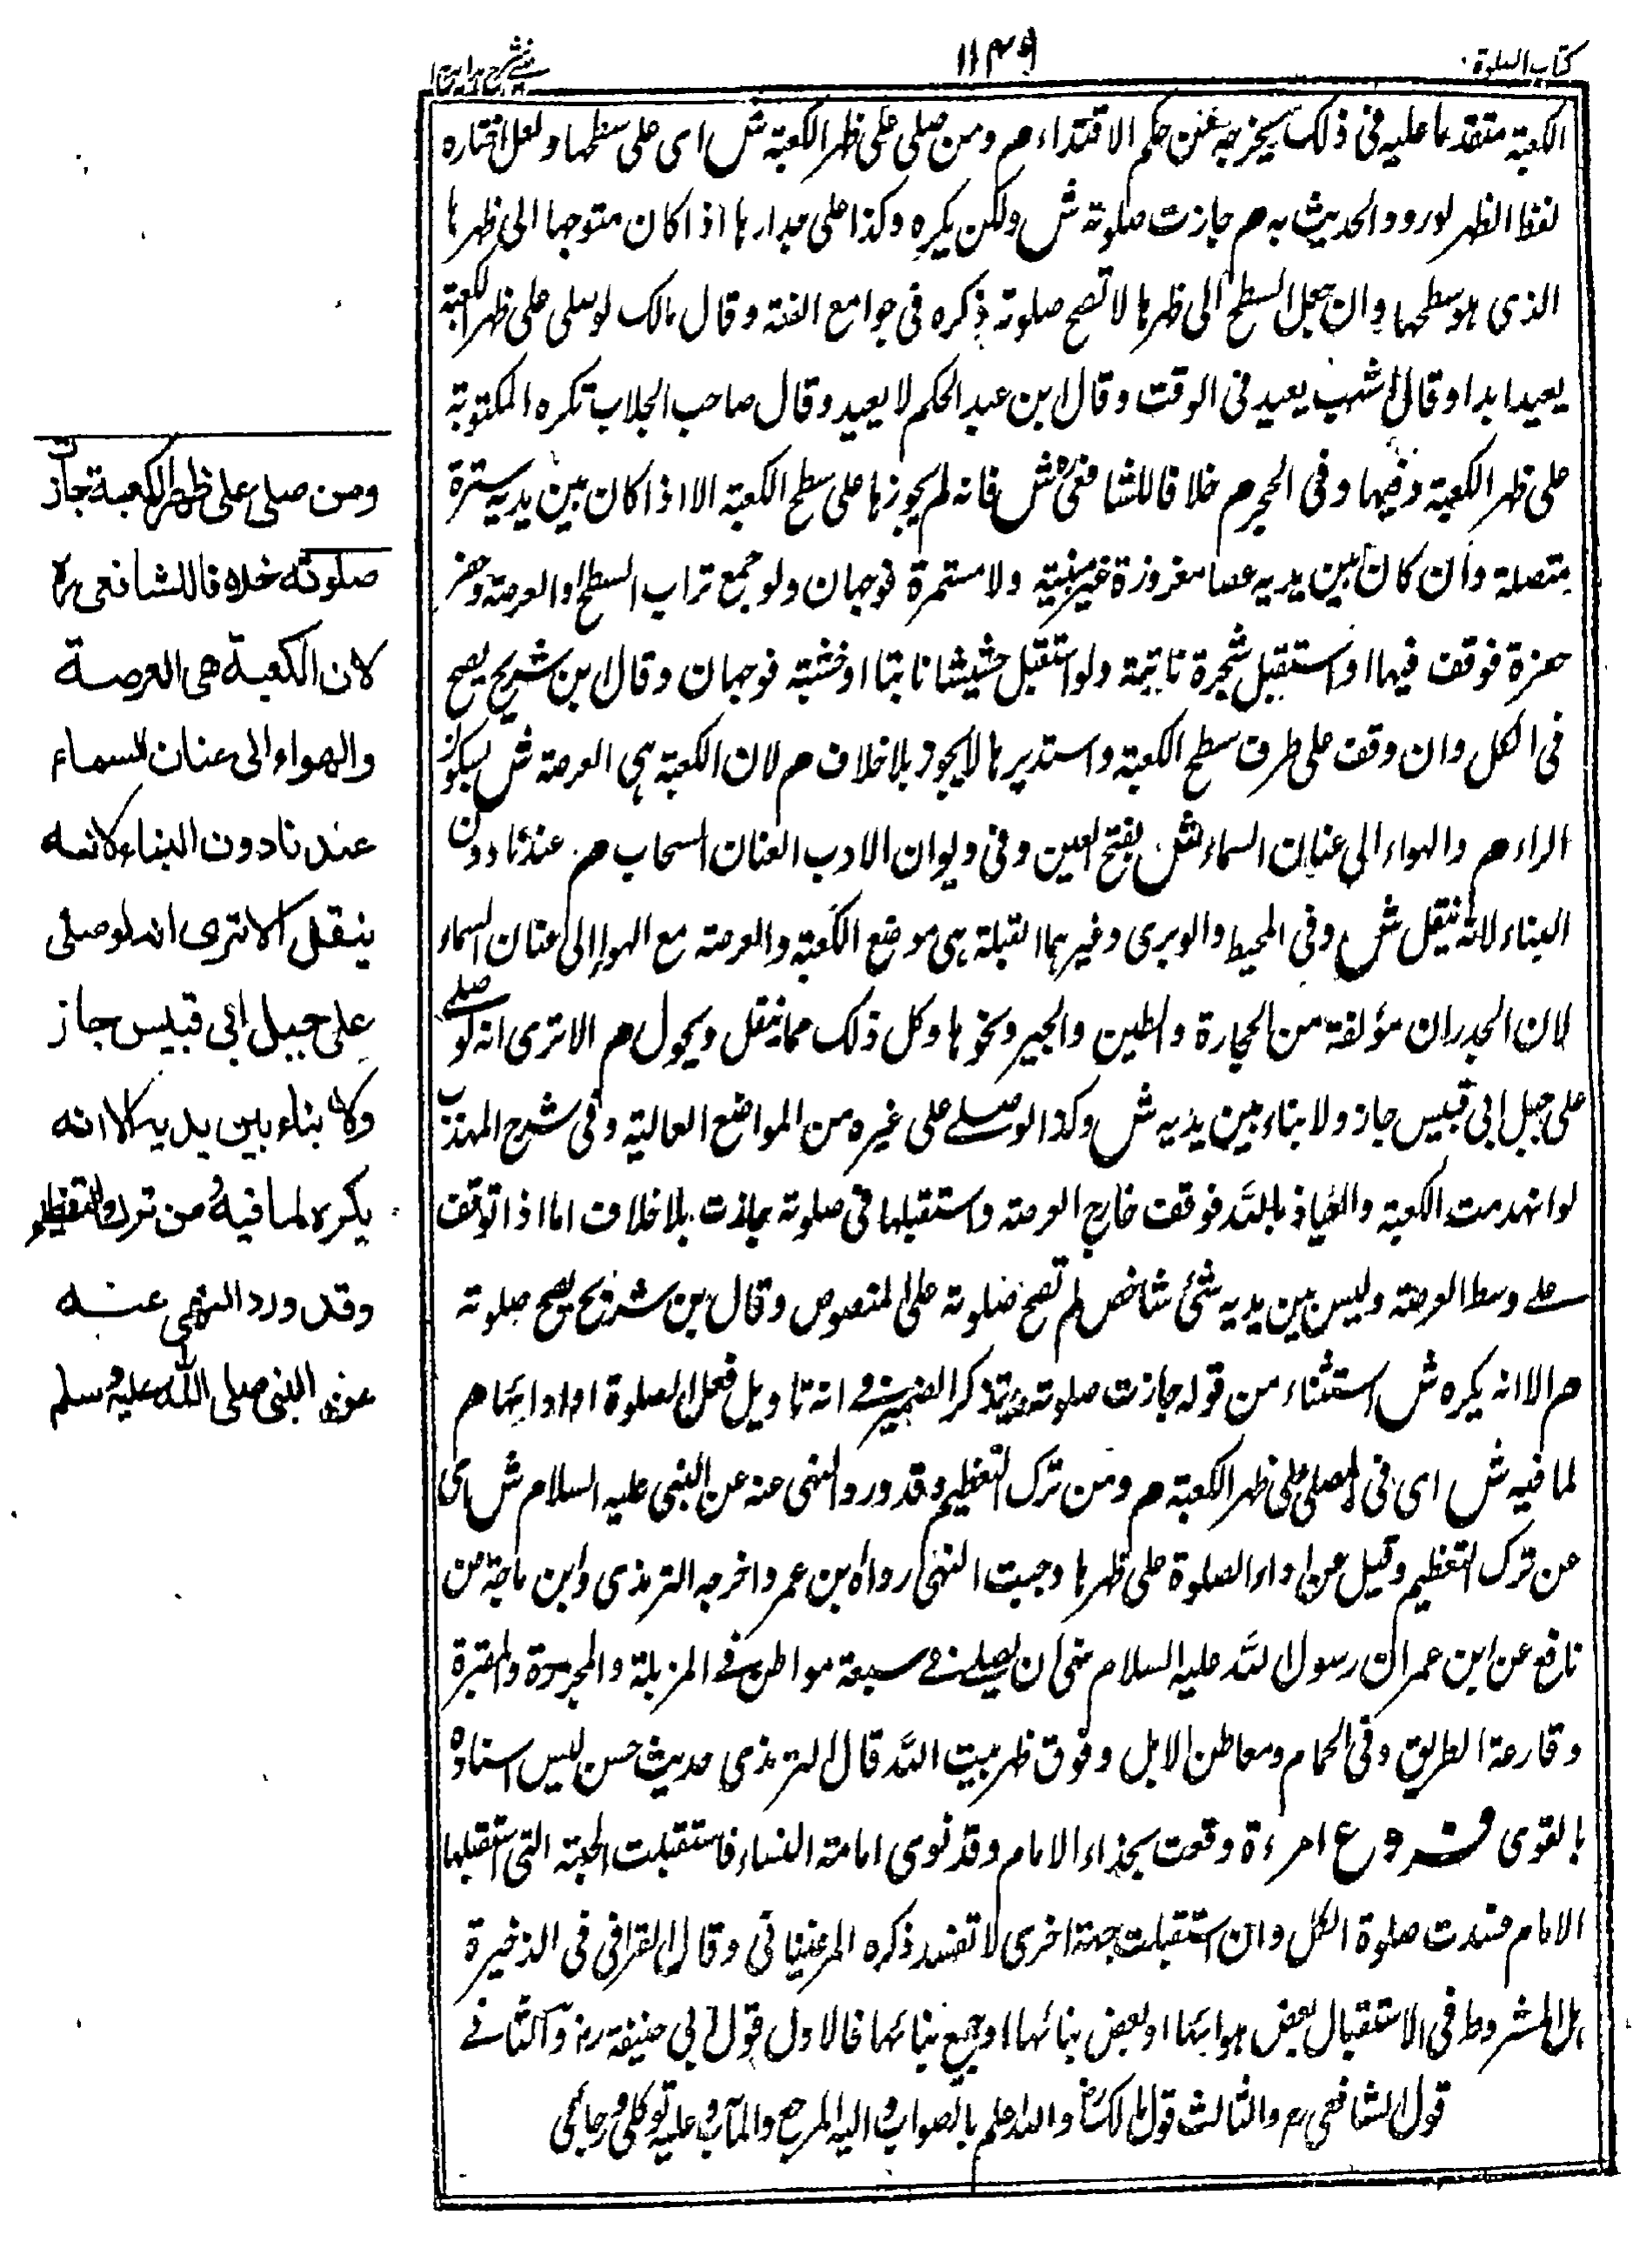 كتاب الصلوة
١١٣٩
عيني شرح هداية ج ا
الكعبة متقدما عليه فى ذلك يخرجه عن حكم الاقتداء م ومن صلى على ظهر الكعبة ش اى على سطحها ولعل اختاره
لفظ الظهر لورود الحديث به م جازت صلوته ش ولكن يكره وكذا على جدارها اذا كان متوجها الى ظهرها
الذى هو سطحها وان جعل السطح الى ظهرها لا تصح صلوته ذكره فى جوامع الفقه وقال مالك لو صلى على ظهر الكعبة
يعيد ابدا وقال اشهب يعيد فى الوقت وقال ابن عبد الحكم لا يعيد وقال صاحب الجلاب تكره المكتوبة
على ظهر الكعبة وفيها وفى الحجر م خلافا للشافعى ش فانه لم يجوزها على سطح الكعبة الا اذا كان بين يديه سترة
متصلة وان كان بين يديه عصا مغروزة غير مبنية ولا مستمرة فوجهان ولو جمع تراب السطح او العرصة وحفر
حفرة فوقف فيها او استقبل شجرة نابتة ولو استقبل حشيشا نابتا او خشبة فوجهان وقال ابن شريح يصح
فى الكل وان وقف على طرف سطح الكعبة واستدبرها لا يجوز بلا خلاف م لان الكعبة هى العرصة ش بسكون
الراء م والهواء الى عنان السماء ش بفتح العين وفى ديوان الادب العنان السحاب م عندنا دون
البناء لانه ينقل ش وفى المحيط والوبرى وغيرهما القبلة هى موضع الكعبة والعرصة مع الهواء الى عنان السماء
لان الجدران مؤلفة من الحجارة والطين والجير ونحوها وكل ذلك مما ينقل ويحول م الا ترى انه لو صلے
على جبل ابى قبيس جاز ولا بناء بين يديه ش وكذا لو صلے على غيره من المواضع العالية وفى شرح المهذب
لو انهدمت الكعبة والعياذ بالله فوقف خارج العرصة واستقبلها فى صلوته جازت بلا خلاف اما اذا توقف
علے وسط العرصة وليس بين يديه شئ شاخص لم تصح صلوته على المنصوص وقال ابن شريح يصح صلوته
م الا انه يكره ش استثناء من قوله جازت صلوته وتذكر الضمير فے انه تاويل فعل الصلوة او ادائها م
لما فيه ش اى فى المصلى على ظهر الكعبة م ومن ترك التعظيم وقد ورد النهى عنه عن النبى عليه السلام ش اى
عن ترك التعظيم وقيل عن اداء الصلوة على ظهرها وحيث النهى رواه ابن عمر واخرجه الترمذى وابن ماجة من
نافع عن ابن عمر ان رسول الله عليه السلام نهى ان يصلے فے سبعة مواطن فے المزبلة والمجزرة والمقبرة
وقارعة الطريق وفى الحمام ومعاطن الابل وفوق ظهر بيت الله قال الترمذى حديث حسن ليس اسناده
بالقوى فروع امرءة وقعت بحذاء الامام وقد نوى امامة النساء فاستقبلت الجهة التى استقبلها
الامام فسدت صلوة الكل وان استقبلت جهة اخرى لا تفسد ذكره المرغينانى وقال القرافى فى الذخيرة
بل المشروط فى الاستقبال بعض هوائها او بعض بنائها او جميع بنائها فالاول قول ابى حنيفة رح والثانے
قول الشافعى رح والثالث قول مالك رح والله اعلم بالصواب واليه المرجع والمآب وعليه توكلى ورجائى
ومن صلى على ظهر الكعبة جازت
صلوته خلافا للشافعى رح
لان الكعبة هى العرصة
والهواء الى عنان السماء
عندنا دون البناء لانه
ينقل الا ترى انه لو صلى
على جبل ابى قبيس جاز
ولا بناء بين يديه الا انه
يكره لما فيه من ترك التعظيم
وقد ورد النهى عنه
عن النبى صلى الله عليه وسلم